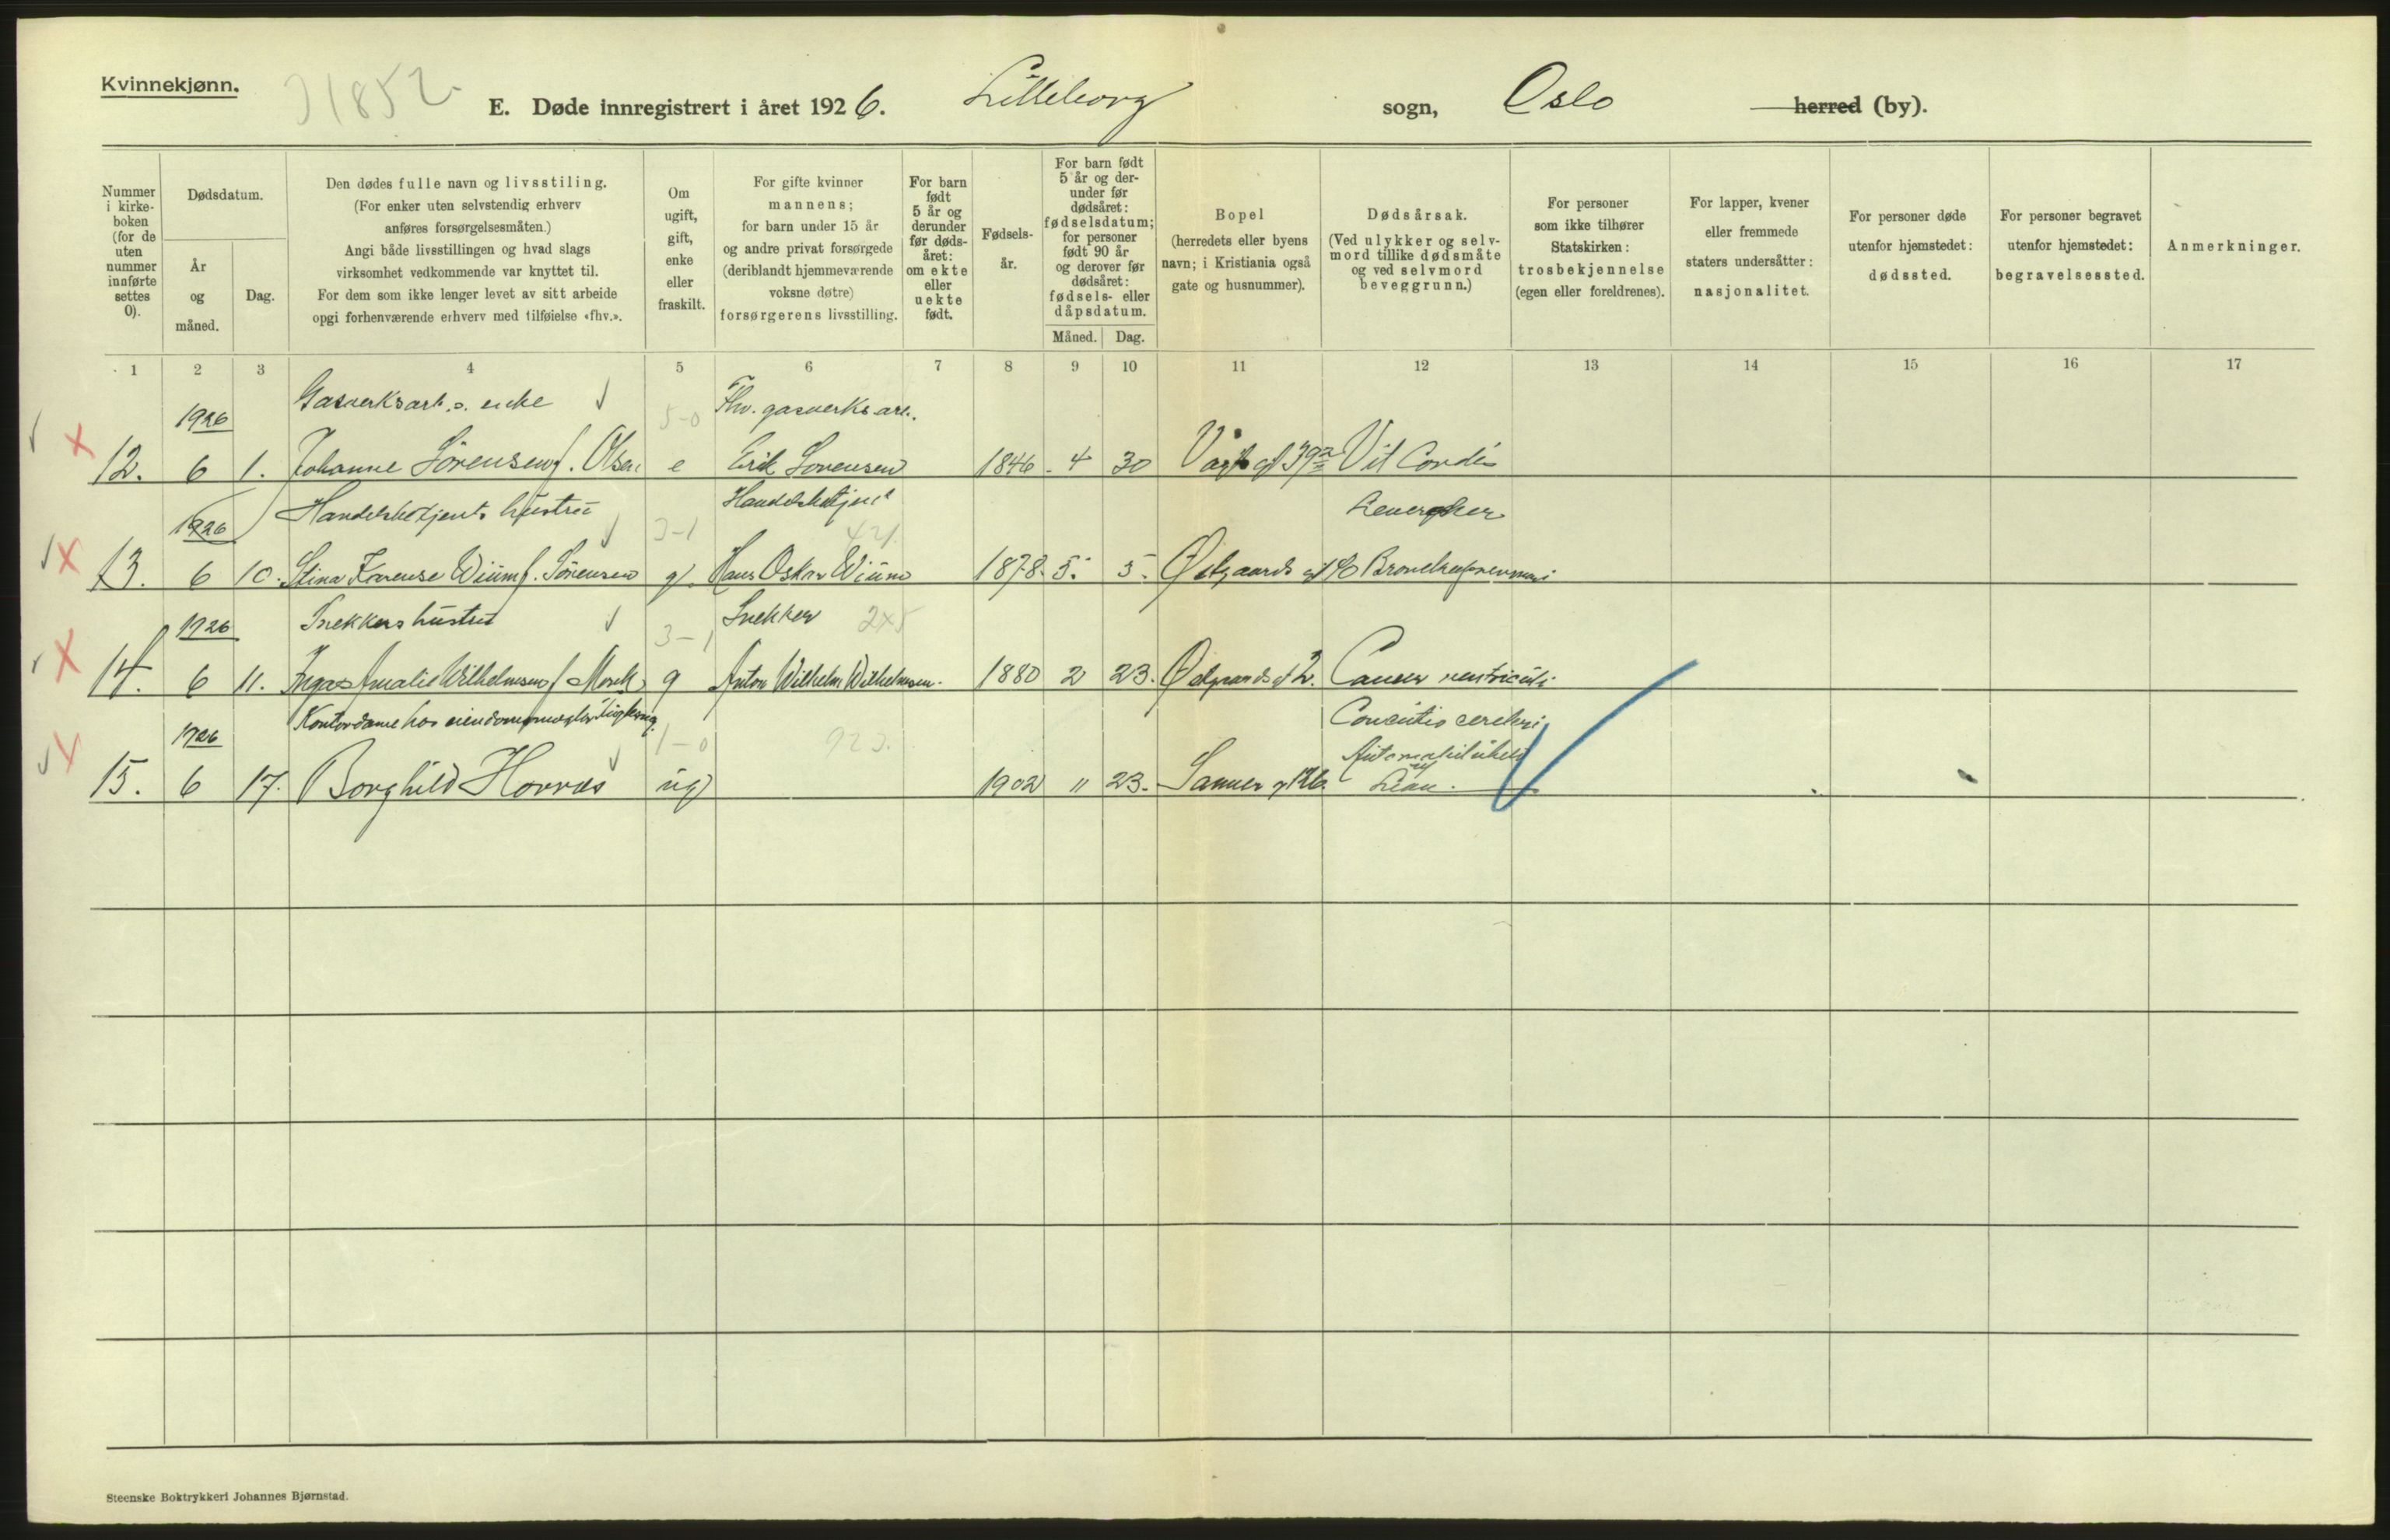 Kvinnekjønn.
31852
E. Døde innregistrert i året 1926. Lilleborg sogn, Oslo herred (by).
Nummer i kirkeboken (for de uten nummer innførte settes 0).
Dødsdatum.
År og måned.
Dag.
Den dødes fulle navn og livsstiling.
(For enker uten selvstendig erhverv
anføres forsørgelsesmåten.)
Angi både livsstillingen og hvad slags
virksomhet vedkommende var knyttet til.
For dem som ikke lenger levet av sitt arbeide
opgi forhenværende erhverv med tilføielse «fhv.».
Om ugift, gift, enke eller fraskilt.
For gifte kvinner
mannens;
for barn under 15 år
og andre privat forsørgede
(deriblandt hjemmeværende
voksne døtre)
forsørgerens livsstilling.
For barn født 5 år og derunder før dødsåret: om ekte eller uekte født.
Fødselsår.
For barn født 5 år og derunder før dødsåret: fødselsdatum; for personer født 90 år og derover før dødsåret: fødsels- eller dåpsdatum.
Måned. Dag.
Bopel
(herredets eller byens
navn; i Kristiania også
gate og husnummer).
Dødsårsak.
(Ved ulykker og selvmord tillike dødsmåte
og ved selvmord
beveggrunn.)
For personer
som ikke tilhører
Statskirken:
trosbekjennelse
(egen eller foreldrenes).
For lapper, kvener
eller fremmede
staters undersåtter:
nasjonalitet.
For personer døde
utenfor hjemstedet:
dødssted.
For personer begravet
utenfor hjemstedet:
begravelsessted.
Anmerkninger.
1 2 3 4 5 6 7 8 9 10 11 12 13 14 15 16 17
1926 Gasverksarb.s. enke 5-0 Fhv. gasverksarb.
12. 6 1. Johanne Sörensen f. Olsen e Erik Sorensen 1846 4 30 Vogts gt 39a Vit. Cordis
1926 Handelsbetjents hustru 3-1 Handelsbetjent 421.
13. 6 10. Stina Karense Wiüm f. Sörensen g. Hans Oskar Wiüm 1878. 5. 5. Østgaards gt Bronchopneumoni
1926 Snekkers hustru 3-1 Snekker 2x5
14. 6 11. Inga Amalie Wilhelmsen f. Mork g Anton Wilhelm Wilhelmsen. 1880 2 23. Østgaards gt 2. Cancer ventriculi
1926 Kontordame hos 1-0 923. Concutio cerebri
Automobiluheld
15. 6 17. Borghild Horrås ug 1902 11 23. Sanner gt
Steenske Boktrykkeri Johannes Bjørnstad.